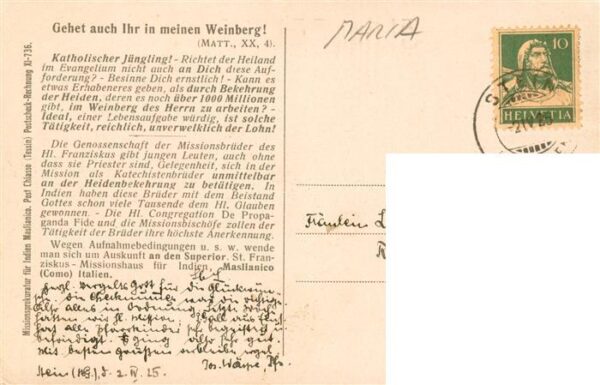 Gehet auch Ihr in meinen Weinberg!
(MATT., XX, 4).
Katholischer Jüngling! - Richtet der Heiland
im Evangelium nicht auch an Dich diese Auf-
forderung? - Besinne Dich ernstlich! - Kann es
etwas Erhabeneres geben, als durch Bekehrung
der Heiden, deren es noch über 1000 Millionen
gibt, im Weinberg des Herrn zu arbeiten? -
Ideal, einer Lebensaufgabe würdig, ist solche
Tätigkeit, reichlich, unverwelklich der Lohn!
Die Genossenschaft der Missionsbrüder des
Hl. Franziskus gibt jungen Leuten, auch ohne
dass sie Priester sind, Gelegenheit, sich in der
Mission als Katechistenbrüder unmittelbar
an der Heidenbekehrung zu betätigen. In
Indien haben diese Brüder mit dem Beistand
Gottes schon viele Tausende dem Hl. Glauben
gewonnen. - Die Hl. Congregation De Propa-
ganda Fide und die Missionsbischöfe zollen der
Tätigkeit der Brüder ihre höchste Anerkennung.
Wegen Aufnahmebedingungen u. s. w. wende
man sich um Auskunft an den Superior. St. Fran-
ziskus - Missionshaus für Indien, Maslianico
(Como) Italien.
Missionsprokuratur für Indien Maslianico. Post Chiasso (Tessin) Postscheck-Rechnung XI-736.
MARIA
10
HELVETIA
Fräulein L
vergelts Gott für die
alles in Ordnung
Mit besten Grüssen
Stein 2. IV. 25.